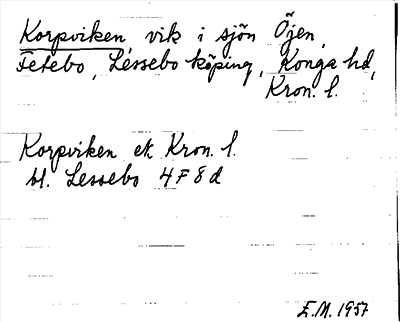 Korpviken, vik i sjön Öjen,
Fetebo, Lessebo köping, Konga hd,
Kron. l.
Korpviken ek Kron. l.
bl. Lessebo 4F8d
E.M. 1957